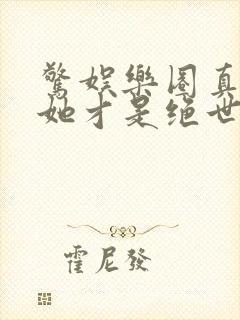 驚娛樂圈真
她才是絕世
霍尼發